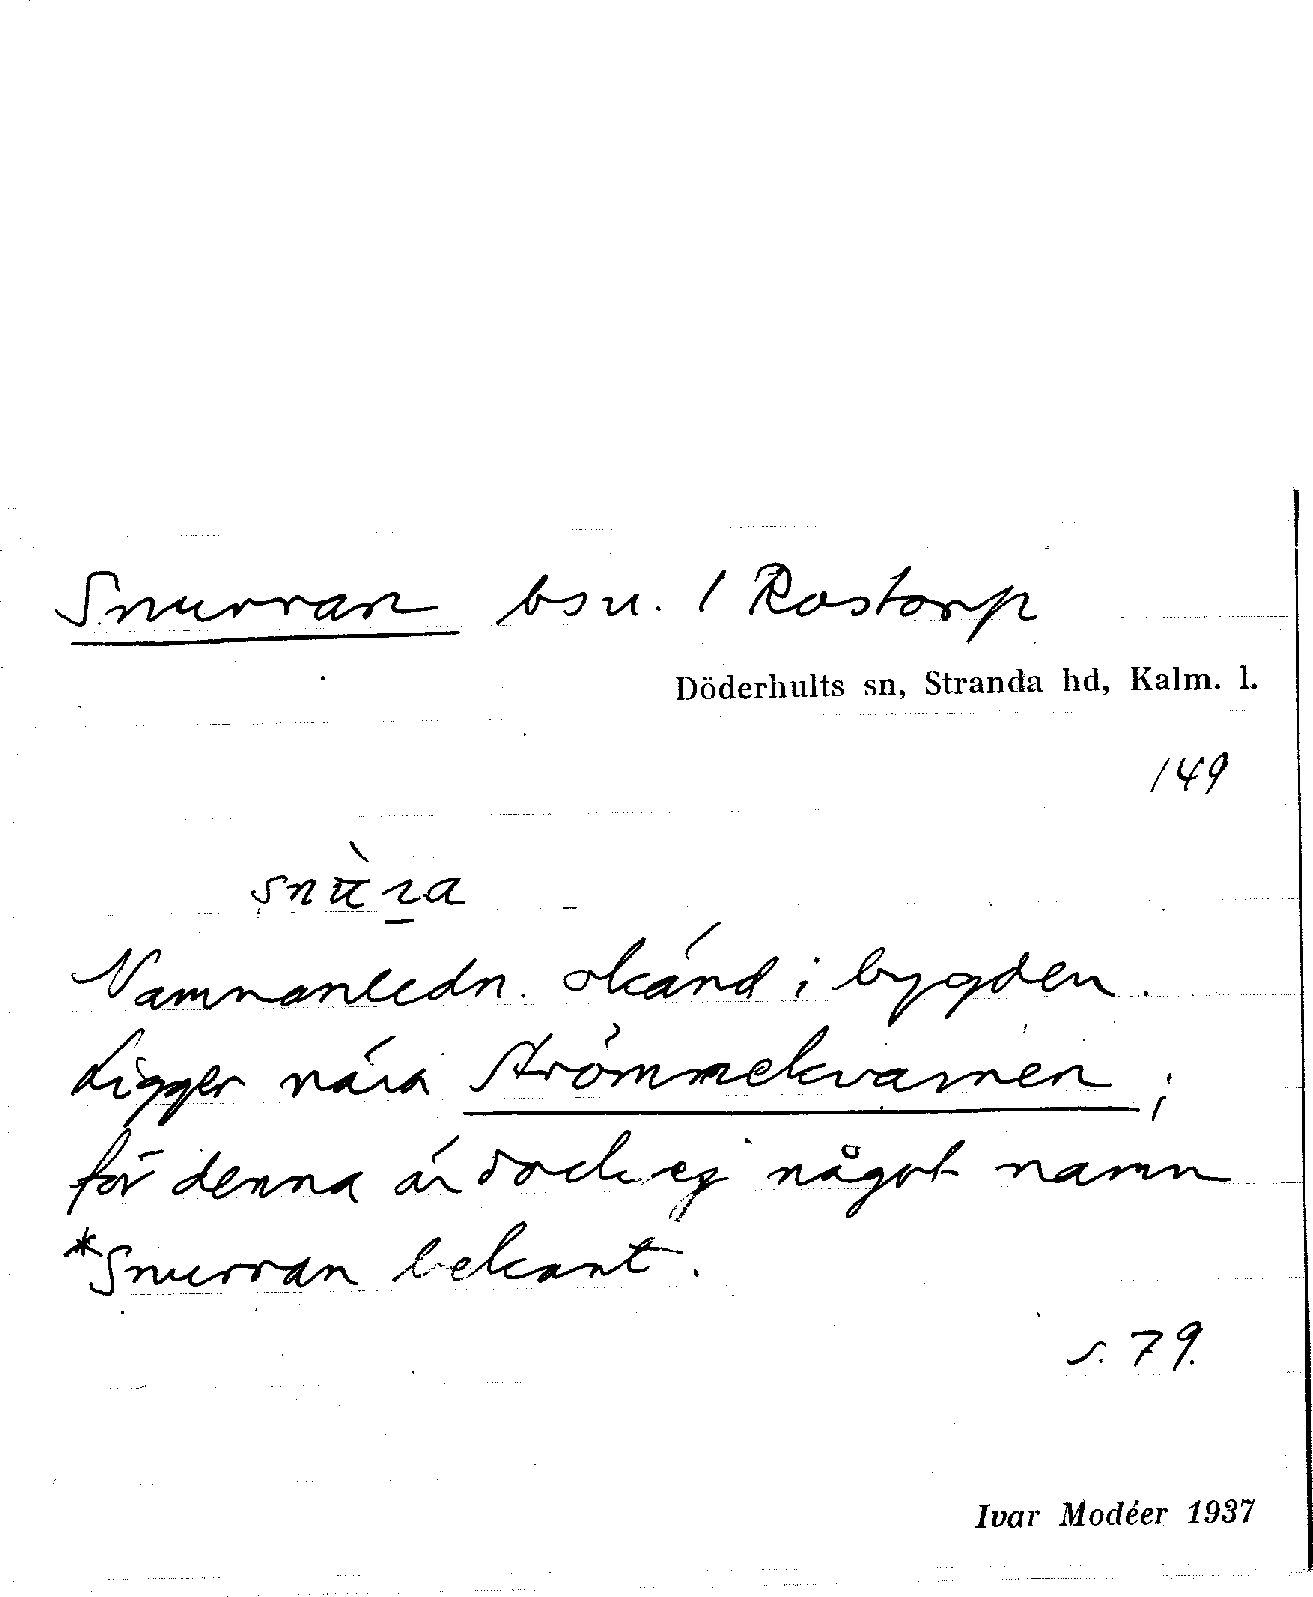 Snurran bsn. 1 Rostorp
Döderhults sn, Stranda hd, Kalm. l.
149
Namnanledn. okänd i bygden.
Ligger nära Strömmekvarnen;
för denna är dock ej något namn
*Snurran bekant.
s. 79.
Ivar Modéer 1937